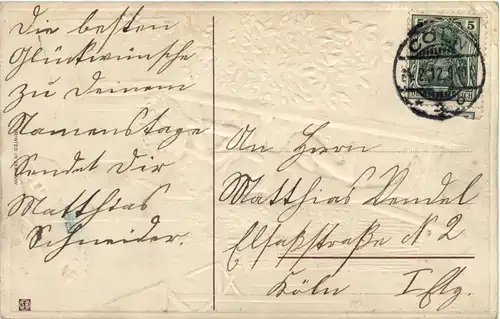 Die besten
Glückwünsche
zu Deinem
Namenstage
Sendet Dir
Matthias
Schneider.
An Herrn
Matthias Dendel
Elsaßstraße N 2
Köln I Etg.
5 5
CÖLN